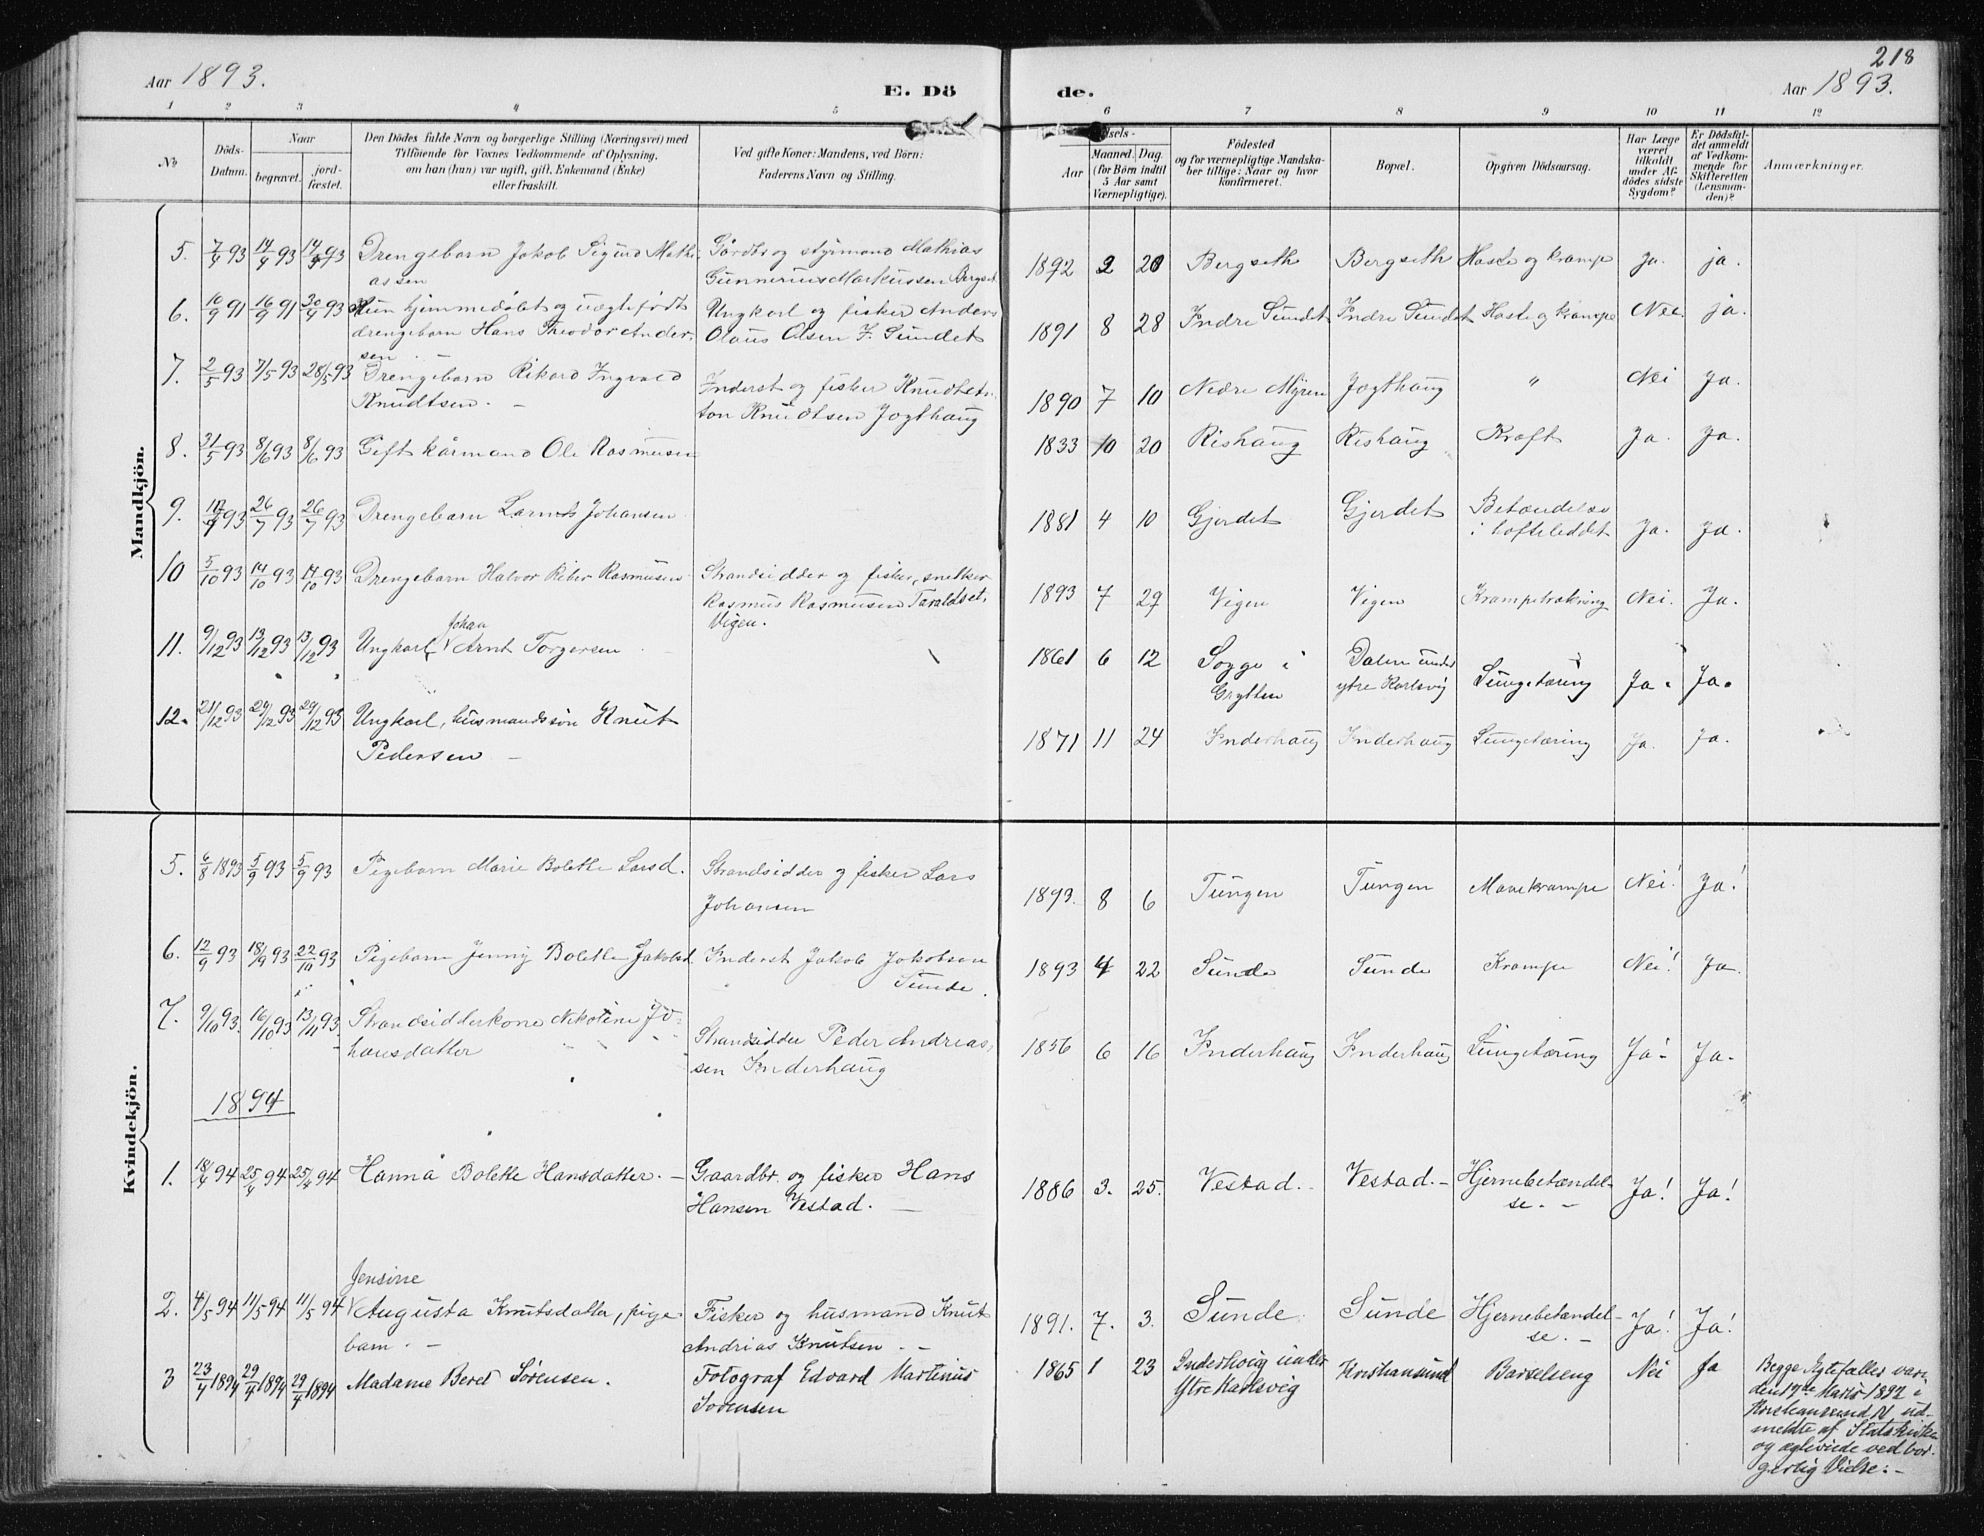 218
Aar 1893.
E. Dö
de.
Aar 1893.
1 2 3 4 5 6 7 8 9 10 11 12
No
Döds-
Datum.
Naar
begravet.
jord-
fæstet.
Den Dödes fulde Navn og borgerlige Stilling (Næringsvei) med
Tilföiende for Voxnes Vedkommende af Oplysning,
om han (hun) var ugift, gift, Enkemand (Enke)
eller fraskilt.
Ved gifte Koner: Mandens, ved Börn:
Faderens Navn og Stilling.
dsels-
Aar
Maaned. Dag.
(for Börn indtil
5 Aar samt
Værnepligtige).
Födested
og for værnepligtige Mandska-
ber tillige: Naar og hvor
konfirmeret.
Bopæl.
Opgiven Dödsaarsag.
Har Læge
været
tilkaldt
under Af-
dödes sidste
Sygdom?
Er Dödsfal-
det anmeldt
af Vedkom-
mende for
Skifteretten
(Lensman-
den)?
Anmærkninger.
Mandkjön.
5. 7/4 93 14/4 93 14/4 93 Drengebarn Jakob Sigurd Mathi-
assen
Gårdbr og styrmand Mathias
Gunnerius Markussen Bergset
1892 2 20 Bergseth Bergseth Hoste og krampe ja. ja.
6. 10/9 91 16/9 91 30/4 93 hjemmedøbt og uægtefødt
drengebarn Hans Theodor Ander-
sen
Ungkarl og fisker Anders
Olaus Olsen I. Sundet
1891 8 28 Indre Sundet Indre Sundet Hoste og krampe Nei. ja.
7. 2/5 93 7/5 93 28/5 93 Drengebarn Rikard Ingvald
Knudtsen. –
Inderst og fisker Knudt
Knudtsen Jogthaug
1890 7 10 Nedre Myren Jogthaug " Nei Ja.
8. 31/5 93 8/6 93 8/6 93 Gift kårmand Ole Rasmusen
1833 10 20 Rishaug Rishaug Kræft Ja. Ja.
9. 93 26/7 93 26/7 93 Drengebarn Johansen
1881 4 10 Gjerdet Gjerdet Betændelse
i hofteleddet Ja. Ja.
10 5/10 93 14/10 93 14/10 93 Drengebarn Halvor Peter Rasmusen
Strandsidder og fisker, snetker
Rasmus Rasmusen Taraldset,
Vigen.
1893 7 29 Vigen Vigen Krampetrækning Nei. Ja.
11. 9/12 93 13/12 93 13/12 93 Ungkarl, Johan Arnt Torgersen
1861 6 12 Sogge i
Grytten
Dalen under
ytre Karlsvig
Lungetæring Ja. Ja.
12. 21/12 93 29/12 93 29/12 93 Ungkarl, husmandssøn Knut
Pedersen –
1871 11 24 Inderhaug Inderhaug Lungetæring Ja. Ja.
Kvindekjön.
5. 6/8 1893 5/9 93 5/9 93 Pigebarn Marie Bolette Larsd.
Strandsidder og fisker Lars
Johansen
1893. 8 6 Tungen Tungen Mavekrampe Nei! Ja!
6. 12/9 93 18/9 93 22/10 93 Pigebarn Jenny Bolette Jakobsd.
Inderst Jakob Jakobsen
Sunde.
1893 4 22 Sunde Sunde Krampe Nei! Ja.
7. 9/10 93. 16/10 93 13/11 93. Strandsidderkone Nikoline Jo-
hansdatter
Strandsidder Peder Andreas-
sen Inderhaug
1856 6 16 Inderhaug Inderhaug Lungetæring Ja! Ja.
1894
1. 18/4 94 25/4 94 25/4 94 Hanna Bolette Hansdatter. –
Gaardbr. og fisker Hans
Hansen Vestad. –
1886 3. 25. Vestad. Vestad. – Hjernebetændel-
se. – Ja! Ja!
2. 4/5 94 11/5 94 11/5 94 Jensine
Augusta Knutsdatter, pige-
barn. –
Fisker og husmand Knut
Andrias Knutsen. –
1891. 7. 3. Sunde Sunde Hjernebetændel-
se. – Ja! Ja!
3 23/4 1894 29/4 1894 29/4 1894 Madame Beret Sørensen.
Fotograf Edvard Martinus
Sørensen
1865 1 23 Inderhoug under
Ytre Karlsvig
Kristiansund Barselseng Nei Ja
Begge Ægtefæller var
den 17de Marts 1892 i
Kristiansund N ud-
meldte af Statskirken
og egteviede ved bor-
gerlig Vielse: –